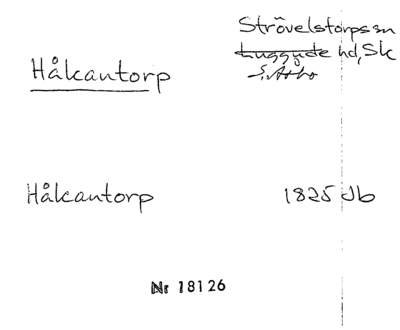 Strövelstorps sn
Håkantorp luggude hd, Sk
S. Åsbo
Håkantorp 1825 Jb
Nr 18126